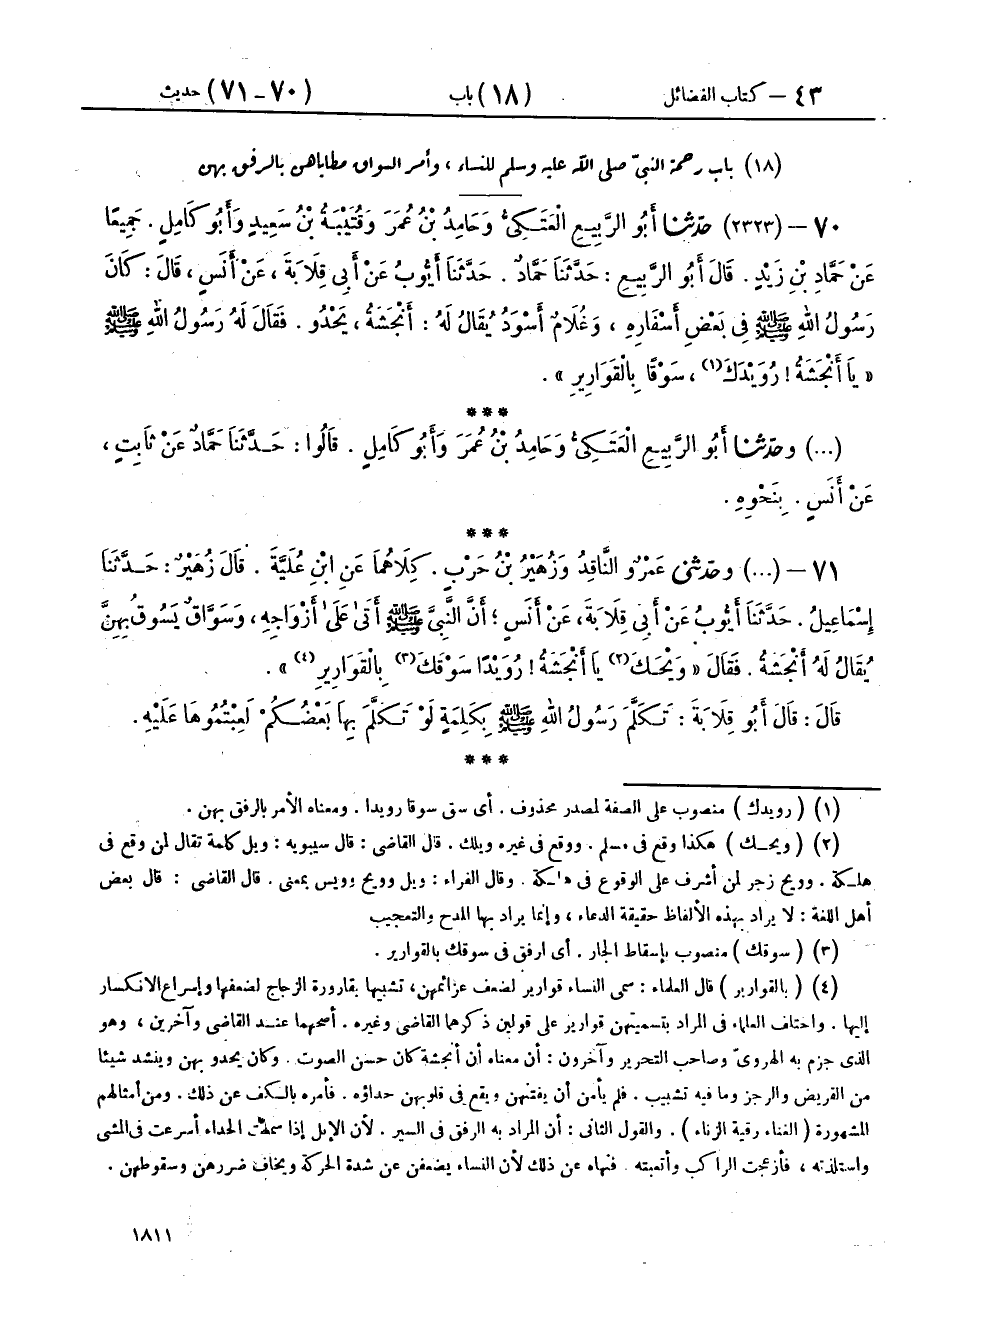 ٤٣ – كتاب الفضائل (١٨) باب (٧٠ – ٧١) حديث
(١٨) باب رحمة النبيّ صلى الله عليه وسلم للنساء ، وأمر السواق مطاياهن بالرفق بهن
٧٠ – (٢٣٢٣) حدّثنا أَبُو الرَّبِيعِ الْعَتَكِىُّ وَحَامِدُ بْنُ عُمَرَ وَقُتَيْبَةُ بْنُ سَعِيدٍ وَأَبُو كَامِلٍ . جَمِيعًا
عَنْ حَمَّادِ بْنِ زَيْدٍ . قَالَ أَبُو الرَّبِيعِ : حَدَّثَنَا حَمَّادٌ . حَدَّثَنَا أَيُّوبُ عَنْ أَبِى قِلَابَةَ ، عَنْ أَنَسٍ ، قَالَ : كَانَ
رَسُولُ اللهِ ﷺ فِى بَعْضِ أَسْفَارِهِ ، وَغُلَامٌ أَسْوَدُ يُقَالُ لَهُ : أَنْجَشَةُ ، يَحْدُو . فَقَالَ لَهُ رَسُولُ اللهِ ﷺ
« يَا أَنْجَشَةُ ! رُوَيْدَكَ(١) ، سَوْقًا بِالْقَوَارِيرِ » .
***
(...) وحدّثنا أَبُو الرَّبِيعِ الْعَتَكِىُّ وَحَامِدُ بْنُ عُمَرَ وَأَبُو كَامِلٍ . قَالُوا : حَدَّثَنَا حَمَّادٌ عَنْ ثَابِتٍ ،
عَنْ أَنَسٍ . بِنَحْوِهِ .
***
٧١ – (...) وحدّثنى عَمْرٌو النَّاقِدُ وَزُهَيْرُ بْنُ حَرْبٍ . كِلَاهُمَا عَنِ ابْنِ عُلَيَّةَ . قَالَ زُهَيْرٌ : حَدَّثَنَا
إِسْمَاعِيلُ . حَدَّثَنَا أَيُّوبُ عَنْ أَبِى قِلَابَةَ ، عَنْ أَنَسٍ ؛ أَنَّ النَّبِىَّ ﷺ أَتَىٰ عَلَىٰ أَزْوَاجِهِ ، وَسَوَّاقٌ يَسُوقُ بِهِنَّ
يُقَالُ لَهُ أَنْجَشَةُ . فَقَالَ « وَيْحَكَ(٢) يَا أَنْجَشَةُ ! رُوَيْدًا سَوْقَكَ(٣) بِالْقَوَارِيرِ(٤) » .
قَالَ : قَالَ أَبُو قِلَابَةَ : تَكَلَّمَ رَسُولُ اللهِ ﷺ بِكَلِمَةٍ لَوْ تَكَلَّمَ بِهَا بَعْضُكُمْ لَعِبْتُمُوهَا عَلَيْهِ .
***
(١) ( رويدك ) منصوب على الصفة لمصدر محذوف . أى سق سوقا رويدا . ومعناه الأمر بالرفق بهن .
(٢) ( ويحك ) هكذا وقع فى مسلم . ووقع فى غيره ويلك . قال القاضى : قال سيبويه : ويل كلمة تقال لمن وقع فى
هلكة . وويح زجر لمن أشرف على الوقوع فى هلكة . وقال الفراء : ويل وويح وويس بمعنى . قال القاضى : قال بعض
أهل اللغة : لا يراد بهذه الألفاظ حقيقة الدعاء ، وإنما يراد بها المدح والتعجيب
(٣) ( سوقك ) منصوب بإسقاط الجار . أى ارفق فى سوقك بالقوارير .
(٤) ( بالقوارير ) قال العلماء : سمى النساء قوارير لضعف عزائمهن، تشبيها بقارورة الزجاج لضعفها وإسراع الانكسار
إليها . واختلف العلماء فى المراد بتسميتهن قوارير على قولين ذكرهما القاضى وغيره . أصحهما عند القاضى وآخرين ، وهو
الذى جزم به الهروىّ وصاحب التحرير وآخرون : أن معناه أن أنجشة كان حسن الصوت . وكان يحدو بهن وينشد شيئا
من القريض والرجز وما فيه تشبيب . فلم يأمن أن يفتنهن ويقع فى قلوبهن حداؤه . فأمره بالكف عن ذلك . ومن أمثالهم
المشهورة ( الغناء رقية الزناء ) . والقول الثانى : أن المراد به الرفق فى السير . لأن الإبل إذا سمعت الحداء أسرعت فى المشى
واستلذته ، فأزعجت الراكب وأتعبته . فنهاه عن ذلك لأن النساء يضعفن عن شدة الحركة ويخاف ضررهن وسقوطهن .
١٨١١